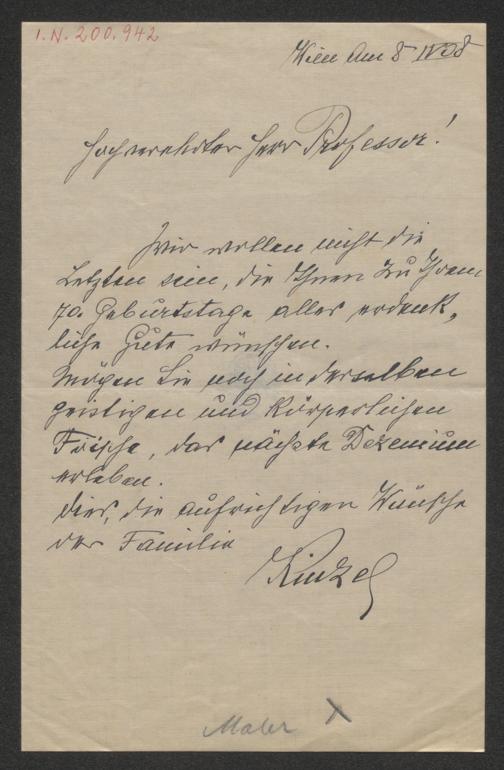 I.N. 200.942
Wien Am 8 IV 08
Hochverehrter Herr Professor!
Wir wollen nicht die
Letzten sein, die Ihnen zu Ihrem
70. Geburtstage alles erdenk„
liche Gute wünschen.
Mögen Sie noch in derselben
geistigen und körperlichen
Frische, das nächste Dezenium
erleben.
Dies, die aufrichtigen Wünsche
der Familie
Kinzel
Maler X